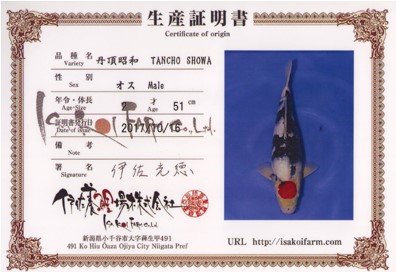 生産証明書
Certificate of origin
品種名 Variety 丹頂昭和 TANCHO SHOWA
性別 Sex オス Male
年令・体長 Age・Size 2 才 Age 51 cm
証明書発行日 Date of issue 2017/10/16
備考 Note
署名 Signature 伊佐光徳
Isa Koi Farm Co., Ltd.
新潟県小千谷市大字薭生甲491
491 Ko Hiu Ooza Ojiya City Niigata Pref
URL http://isakoifarm.com/